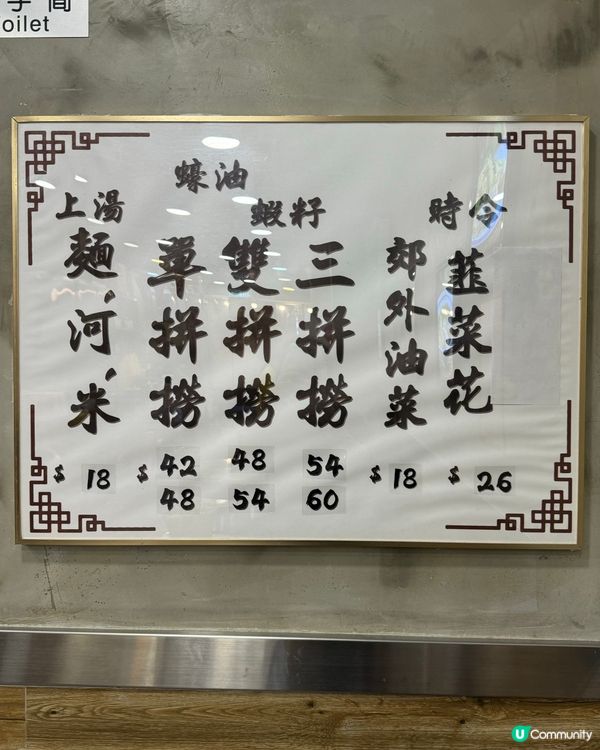 手間
Toilet
蠔油
上湯
蝦籽
時令
麵、河、米
單拼撈
雙拼撈
三拼撈
郊外油菜
韮菜花
$ 18
$ 42 48 54
48 54 60
$ 18
$ 26
U Community